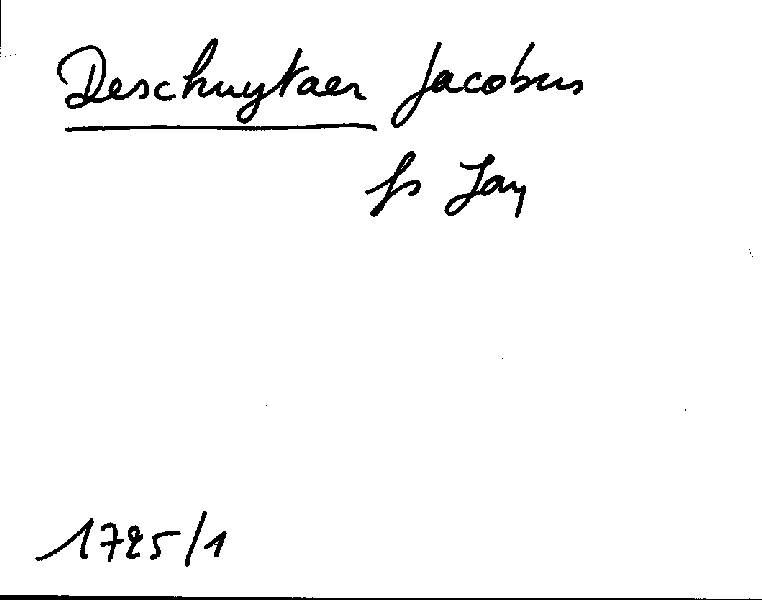 Deschuytaer Jacobus
fs Jan
1725/1